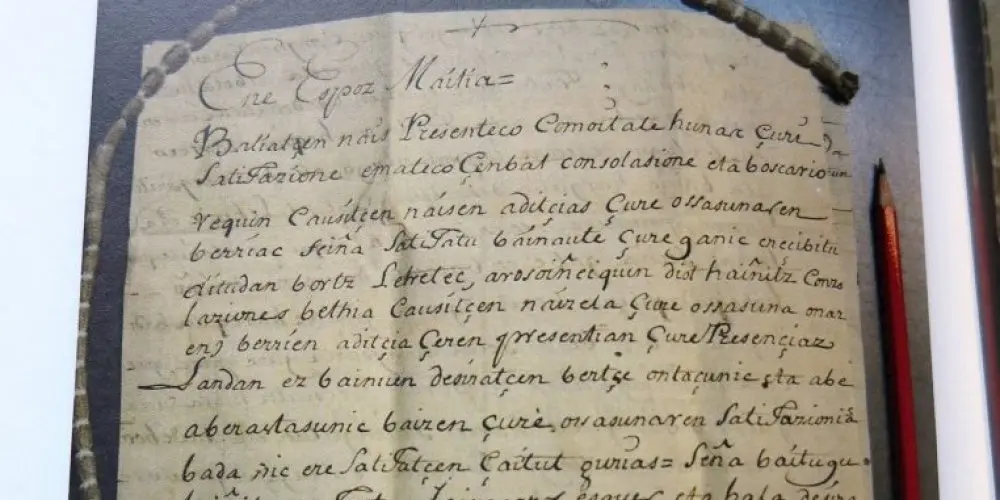 Ene Espoz Maitia=
Baliatçen nais Presenteco Comoditate hunas Çure
Satifazione emateco Çenbat consolasione eta boscario
requin Causitçen naisen aditçias Çure ossasunaren
berriac seiña Satifatu bainaute Çure ganic errecibitu
ditudan bortz Letretec, arosoiñeiquin diot hainitz Conzo
laziones bethia Causitçen naizela Çure ossasuna onar
en) berrien aditçia Çeren qpresentian Çure Presençiaz
Landan ez bainuen desiratçen bertçe ontaçunic eta abe
aberastasunic baizen Çure ossasunaren Satifazionia
bada, nic ere Satifatçen Çaitut gurias= Seña baitugu